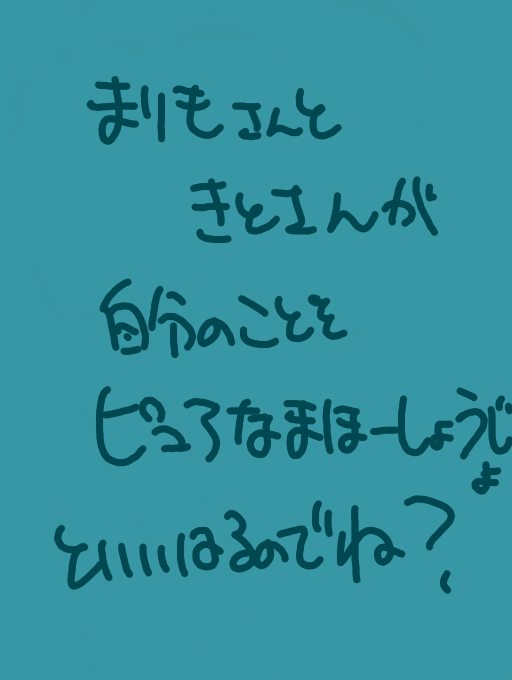 まりもさんと
きとさんが
自分のことを
ピュアなまほーしょうじょ
といいはるのでね？